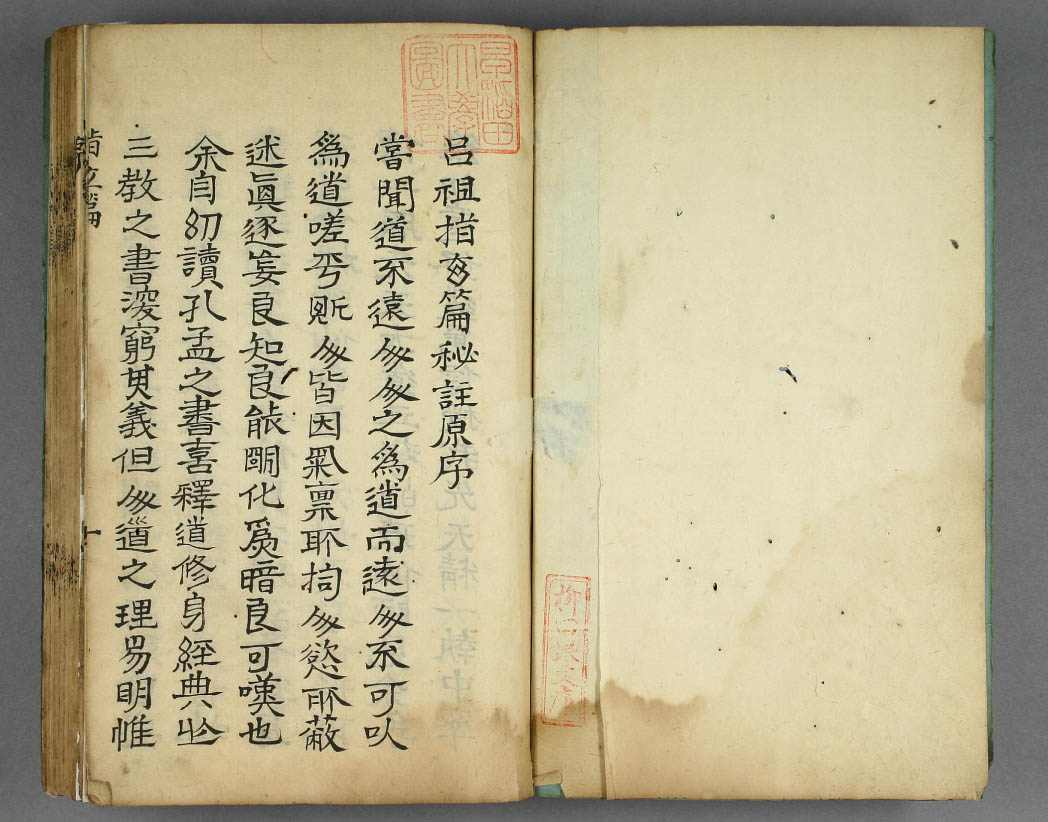 呂祖指玄篇秘註原序
嘗聞道不遠人人之為道而遠人不可以
為道嗟乎凡人皆因氣稟所拘人慾所蔽
迷真逐妄良知良能明化為暗良可嘆也
余自幼讀孔孟之書喜釋道修身經典
三教之書深窮其義但人道之理易明惟
早稲田大學圖書